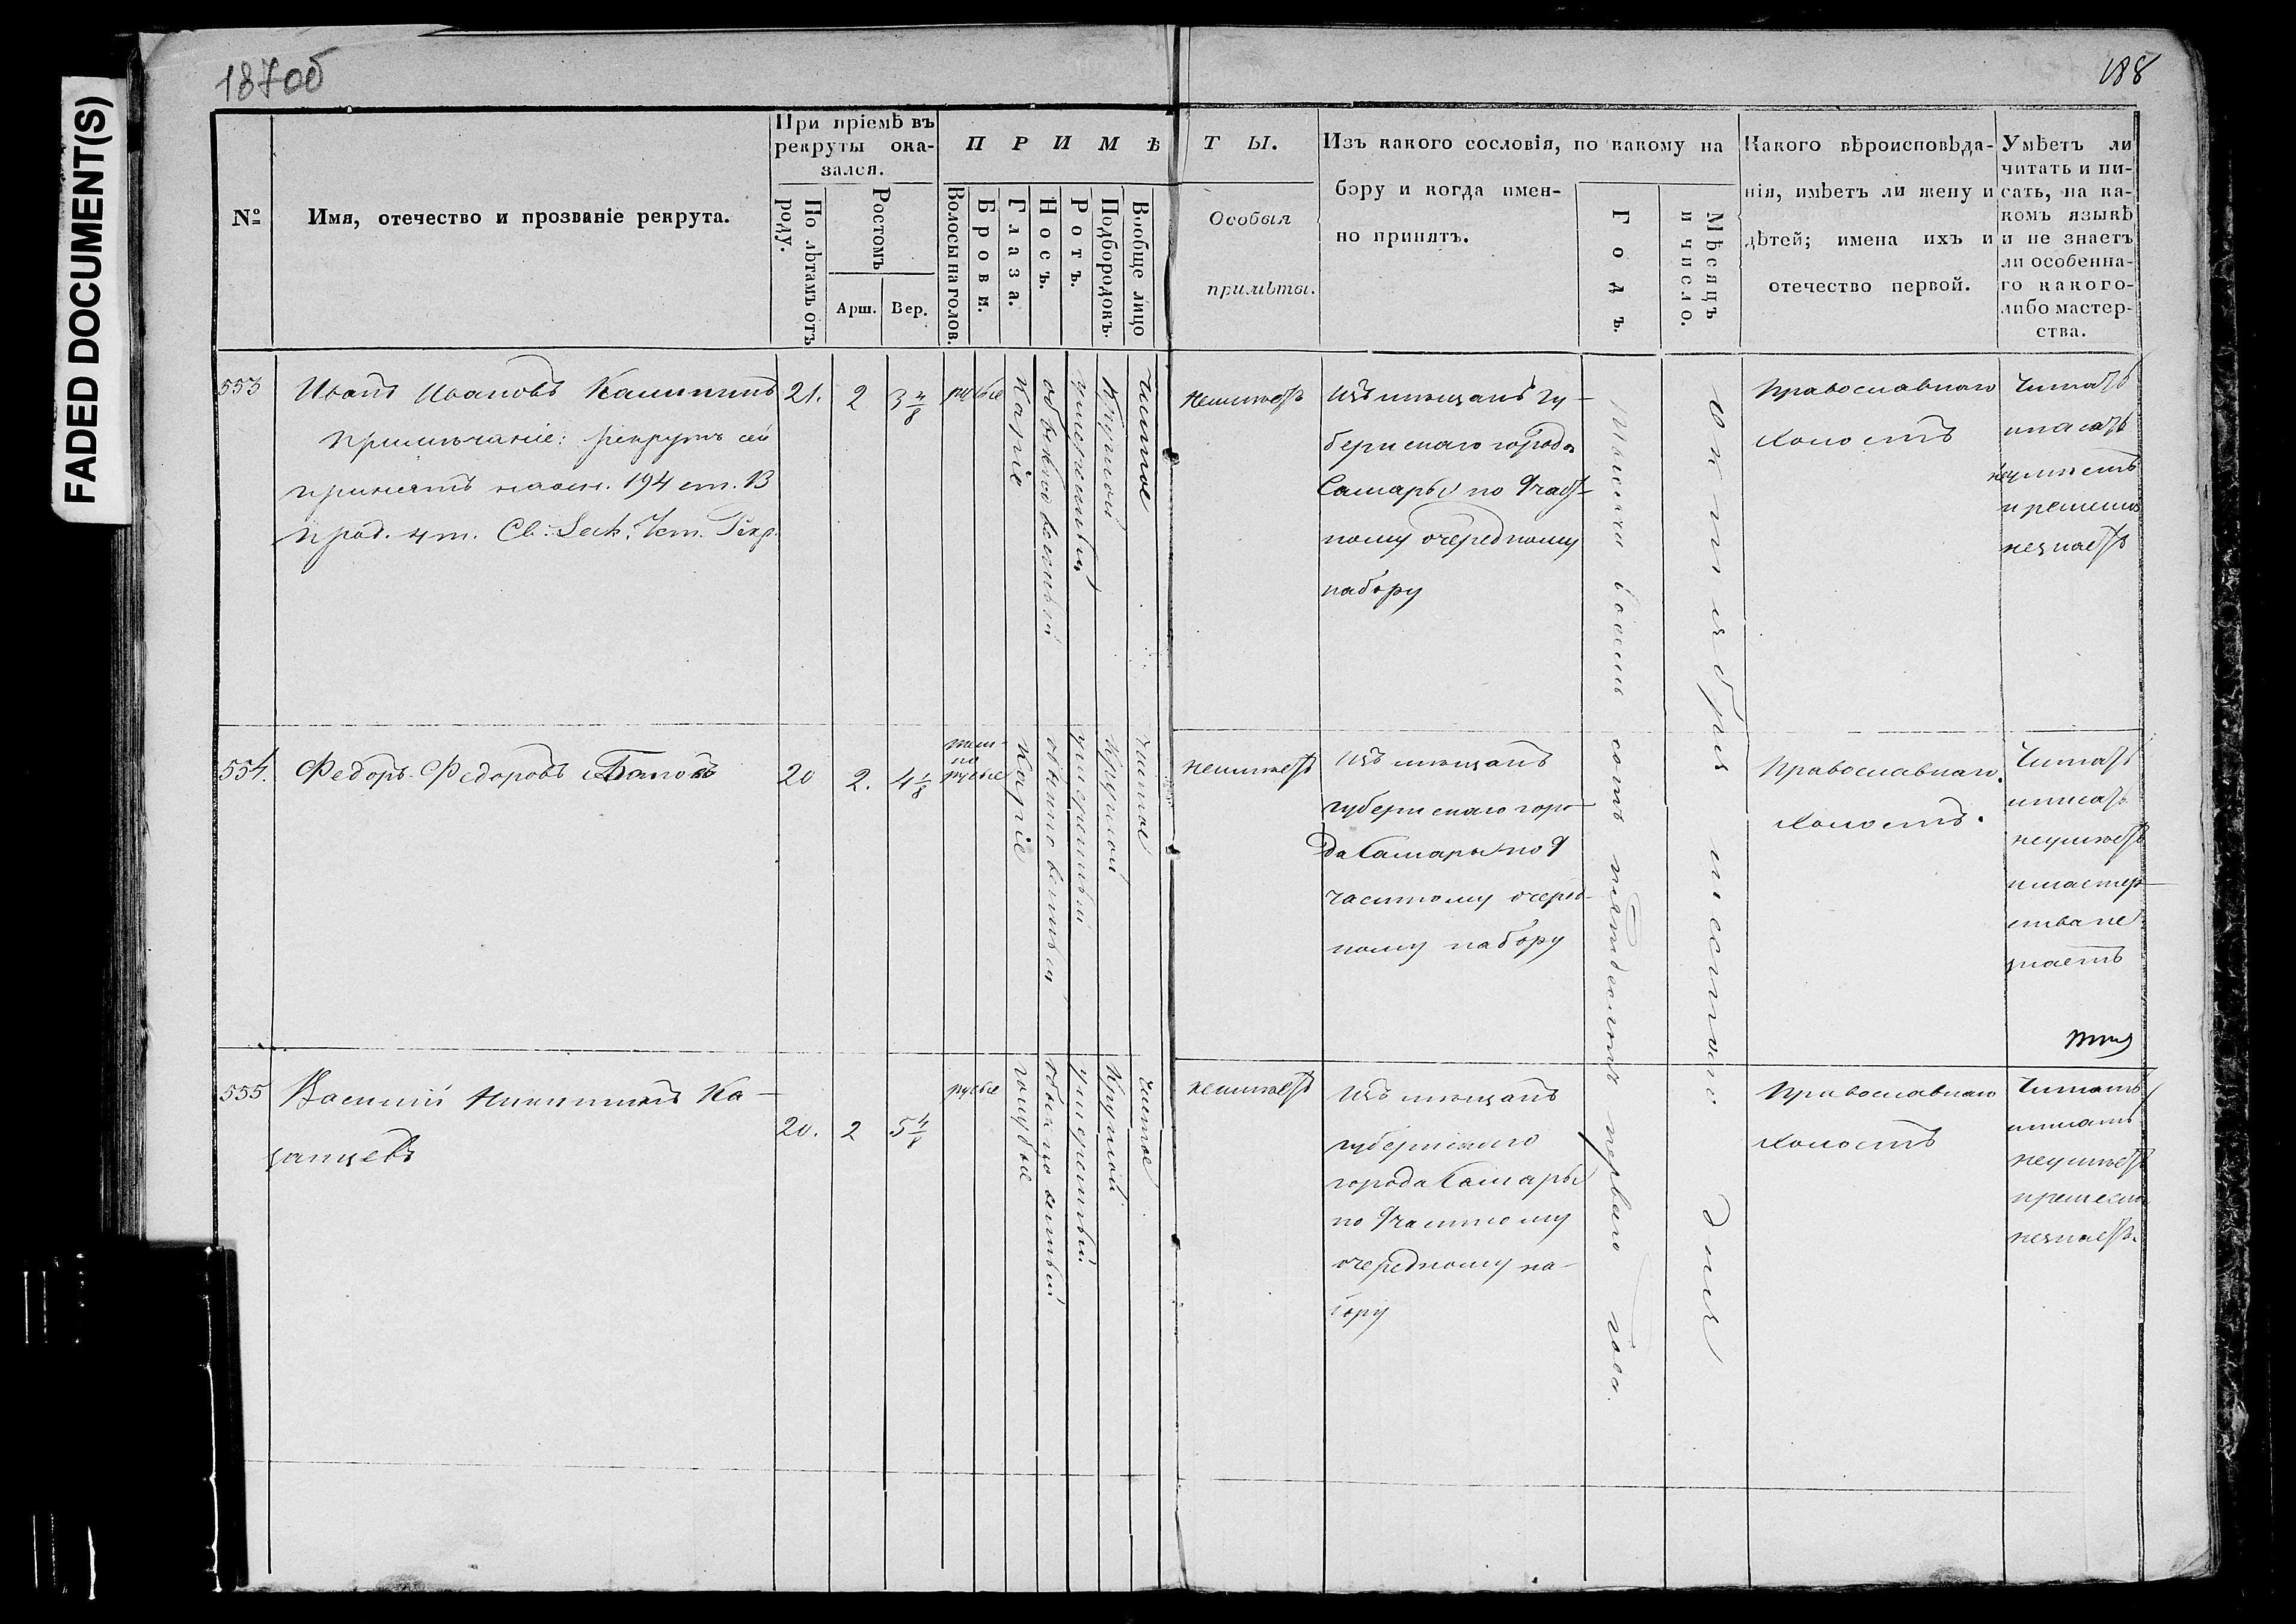 FADED DOCUMENT(S)
187об
188
№
Имя, отечество и прозваніе рекрута.
При пріемѣ въ
рекруты ока-
зался.
По лѣтамъ отъ
роду.
Ростомъ
Арш.
Вер.
ПРИМѢ
ТЫ.
Волосы на голов.
Брови.
Глаза.
Носъ.
Ротъ.
Подбородокъ.
Вообще лицо
Особыя
примѣты.
Изъ какого сословія, по какому на
бору и когда имен-
но принятъ.
Годъ.
Мѣсяцъ
и число.
Какого вѣроисповѣда-
нія, имѣетъ ли жену и
дѣтей; имена ихъ и
отечество первой.
Умѣетъ ли
читать и пи-
сать, на ка-
комъ языкѣ
и не знаетъ
ли особенна-
го какого-
либо мастер-
ства.
553
Иванъ Ивановъ Калининъ
Примѣчаніе: рекрутъ сей
принятъ на осн. 194 ст. В
прод. 4 т. Св. Уст. Рекр.
21.
2
3 4/8
русые
Каріе
обыкновенный
умѣренный
Круглой
Чистое
неимѣетъ
Изъ мѣщанъ гу-
бернскаго города
Самары по 9 част-
ному очередному
набору
Тысяча восемь сотъ пятдесятъ перваго года.
октября шестаго дня
Православнаго
холостъ
Читать
писать
неумѣетъ
и ремесла
незнаетъ
554.
Федоръ Федоровъ
20
2.
4 1/8
темно
русые
Каріе
обыкновенный
умѣренный
Круглой
чистое
неимѣетъ
Изъ мѣщанъ
губернскаго горо-
да Самары по 9
частному очеред-
ному набору
Православнаго.
холостъ.
Читать
и писать
неумѣетъ
и мастер-
ства не
знаетъ
555
Василий Никитинъ Ка-
занцевъ
20.
2
5 4/8
русые
голубые
обыкновенный
умѣренный
Круглой
чистое
неимѣетъ
Изъ мѣщанъ
губернскаго
города Самары
по 9 частному
очередному на-
бору
Православнаго
холостъ
Читать
писать
неумѣетъ
и ремесла
незнаетъ.